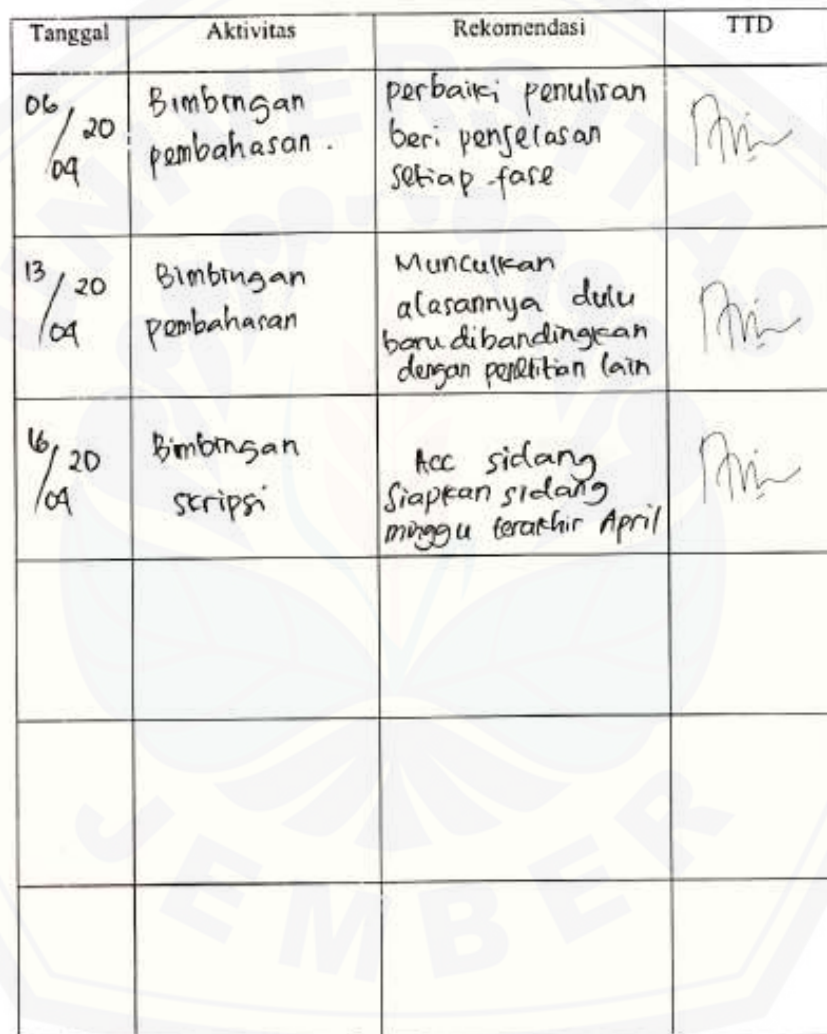 Tanggal Aktivitas Rekomendasi TTD
06/04 20 Bimbingan pembahasan. perbaiki penulisan
beri penjelasan
setiap fase
13/04 20 Bimbingan pembahasan Munculkan
alasannya dulu
baru dibandingkan
dengan penelitian lain
16/04 20 Bimbingan skripsi Acc sidang
Siapkan sidang
minggu terakhir April
UNIVERSITAS
JEMBER